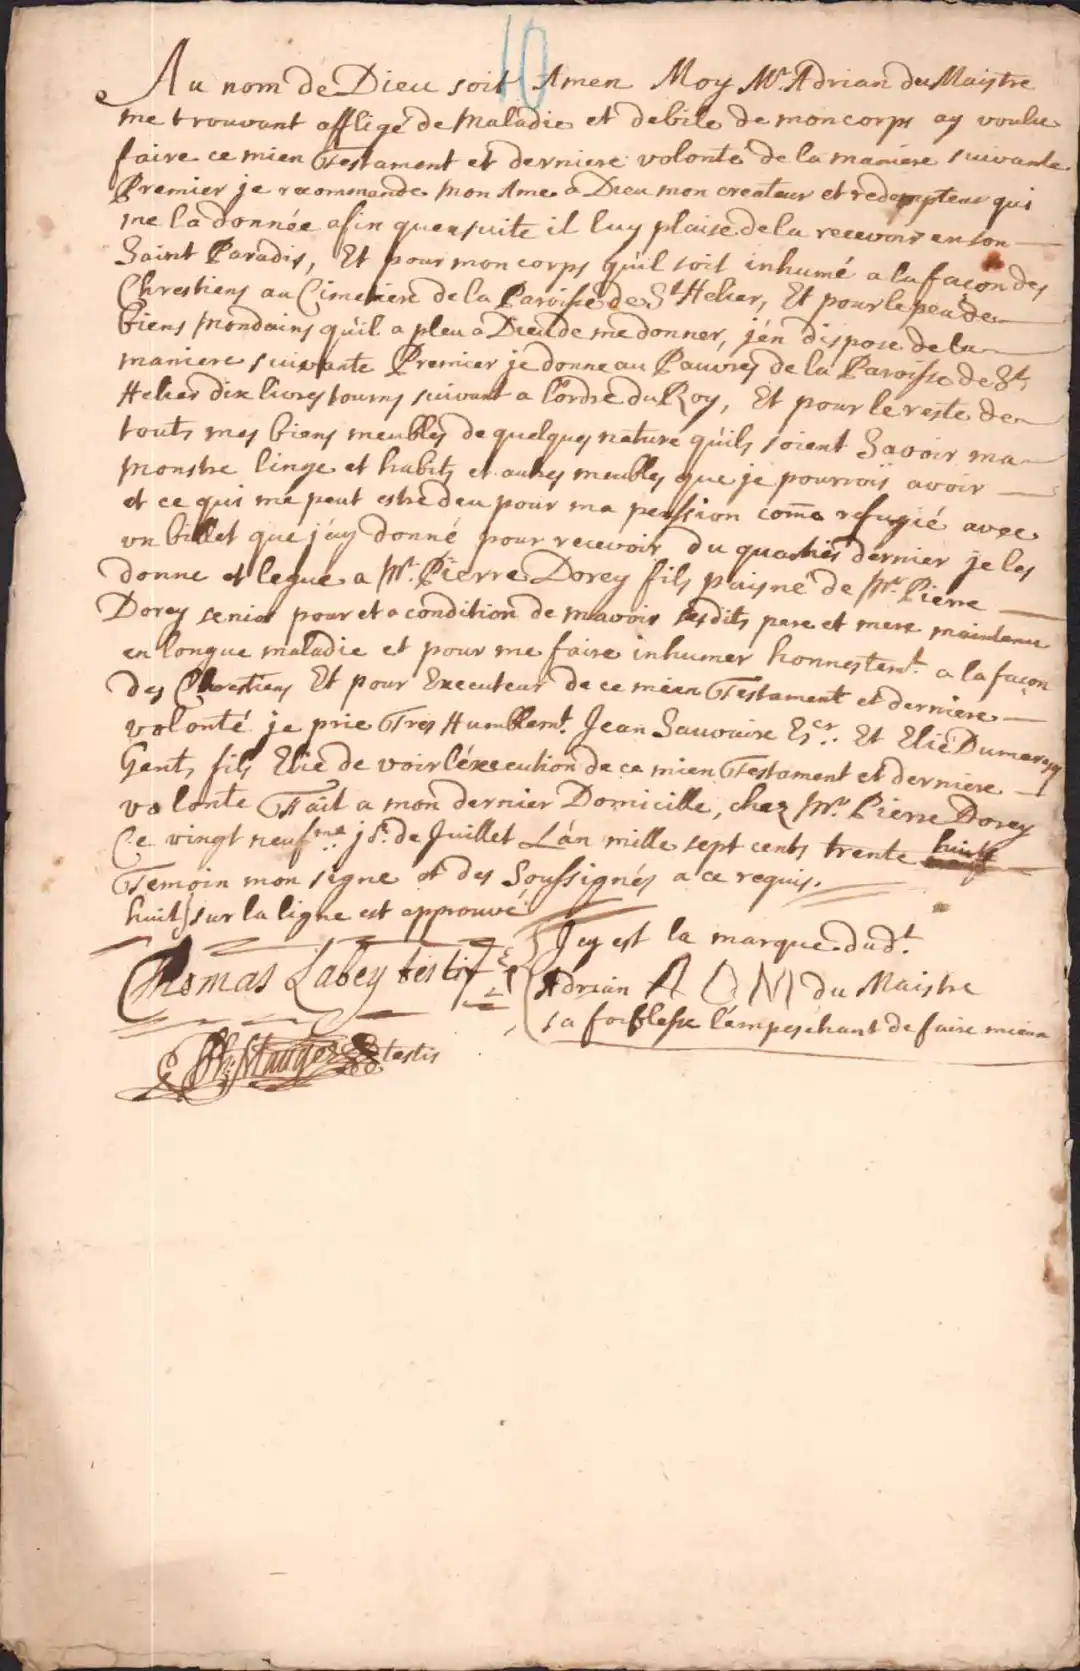 10
Au nom de Dieu soit Amen Moy Mr. Adrian du Maistre
me trouvant affligé de Maladie et debile de mon corps ay voulu
faire ce mien Testament et derniere volonté de la maniere suivante
Premier je recomende Mon Ame a Dieu mon createur et redempteur qui
me la donnée afin quensuite il luy plaise de la recevoir en son
Saint Paradis, Et pour mon corps qu'il soit inhumé a la façon des
Chrestiens au Cimetiere de la Paroisse de St Helier, Et pour le peu de
biens Mondains qu'il a pleu a Dieu de me donner, j'en dispose de la
maniere suivante Premier je donne au Pauvres de la Paroisse de St.
Helier dix livres tourns suivant a l'ordre du Roy, Et pour le reste de
touts mes biens meubles de quelques nature qu'ils soient Savoir ma
Monstre linge et habits et autres meubles que je pourrois avoir
et ce qui me peut estre deu pour ma pension come refugié avec
un billet que j'ay donné pour recevoir du quartier dernier je les
donne et legue a Mr. Pierre Dorey fils puisné de Mr. Pierre
Dorey senior pour et a condition de m'avoir sesdits pere et mere maintenu
en longue maladie et pour me faire inhumer honnestemt. a la façon
des Chrestiens Et pour Executeur de ce mien Testament et derniere
volonté je prie Tres Humblemt. Jean Sauvaire Escr. Et Elie Dumaresq
Gent. fils Elie de voir l'éxecution de ce mien Testament et derniere
volonte Fait a mon dernier Domicille, chez Mr. Pierre Dorey
Ce vingt neufme jr. de Juillet L'an mille sept cents trente huit
Temoin mon signe et des Soussignés a ce requis.
huit sur la ligne est approuvé
Thomas Labey testis
Icy est la marque dudt.
Adrian A D M du Maistre
sa foiblesse l'empeschant de faire mieux
Ph: Mauger testis